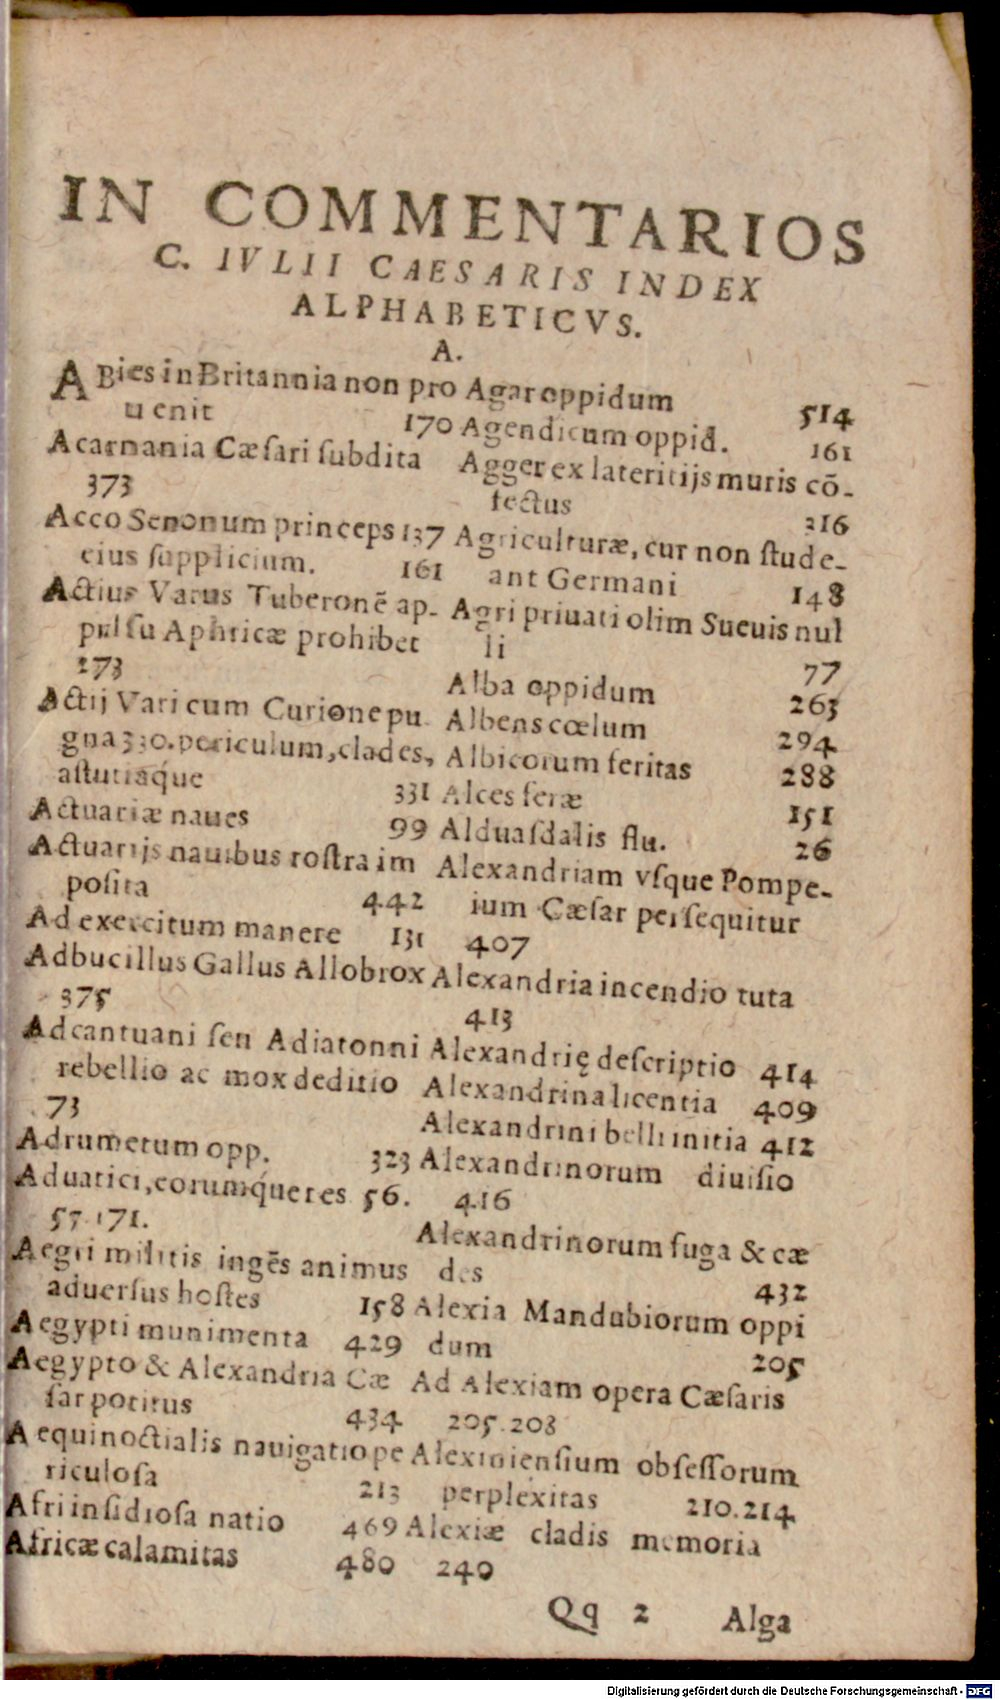 IN COMMENTARIOS
C. IVLII CAESARIS INDEX
ALPHABETICVS.
A.
ABies in Britannia non pro
uenit 170
Acarnania Cæsari subdita
373
Acco Senonum princeps 137
eius supplicium. 161
Actius Varus Tuberonē ap-
pulsu Aphricæ prohibet
273
Actij Vari cum Curione pu
gna 330. periculum, clades,
astutiaq́ue 331
Actuariæ naues 99
Actuarijs nauibus rostra im
posita 442
Ad exercitum manere 131
Adbucillus Gallus Allobrox
375
Adcantuani seu Adiatonni
rebellio ac mox deditio
73
Adrumetum opp. 323
Aduatici, eorumq́ue res 56.
57. 171.
Aegri militis ingēs animus
aduersus hostes 158
Aegypti munimenta 429
Aegypto & Alexandria Cæ
sar potitus 434
Aequinoctialis nauigatio pe
riculosa 213
Afri insidiosa natio 469
Africæ calamitas 480
Agar oppidum 514
Agendicum oppid. 161
Agger ex lateritijs muris cō-
tectus 216
Agriculturæ, cur non stude-
ant Germani 148
Agri priuati olim Sueuis nul
li 77
Alba oppidum 263
Albens cœlum 294
Albicorum feritas 288
Alces feræ 151
Alduasdalis flu. 26
Alexandriam vsque Pompe-
ium Cæsar persequitur
407
Alexandria incendio tuta
413
Alexandrię descriptio 414
Alexandrina licentia 409
Alexandrini belli initia 412
Alexandrinorum diuisio
416
Alexandrinorum fuga & cæ
des 432
Alexia Mandubiorum oppi
dum 205
Ad Alexiam opera Cæsaris
205. 208
Alexiniensium obsessorum
perplexitas 210. 214
Alexiæ cladis memoria
240
Qq 2 Alga
Digitalisierung gefördert durch die Deutsche Forschungsgemeinschaft - DFG